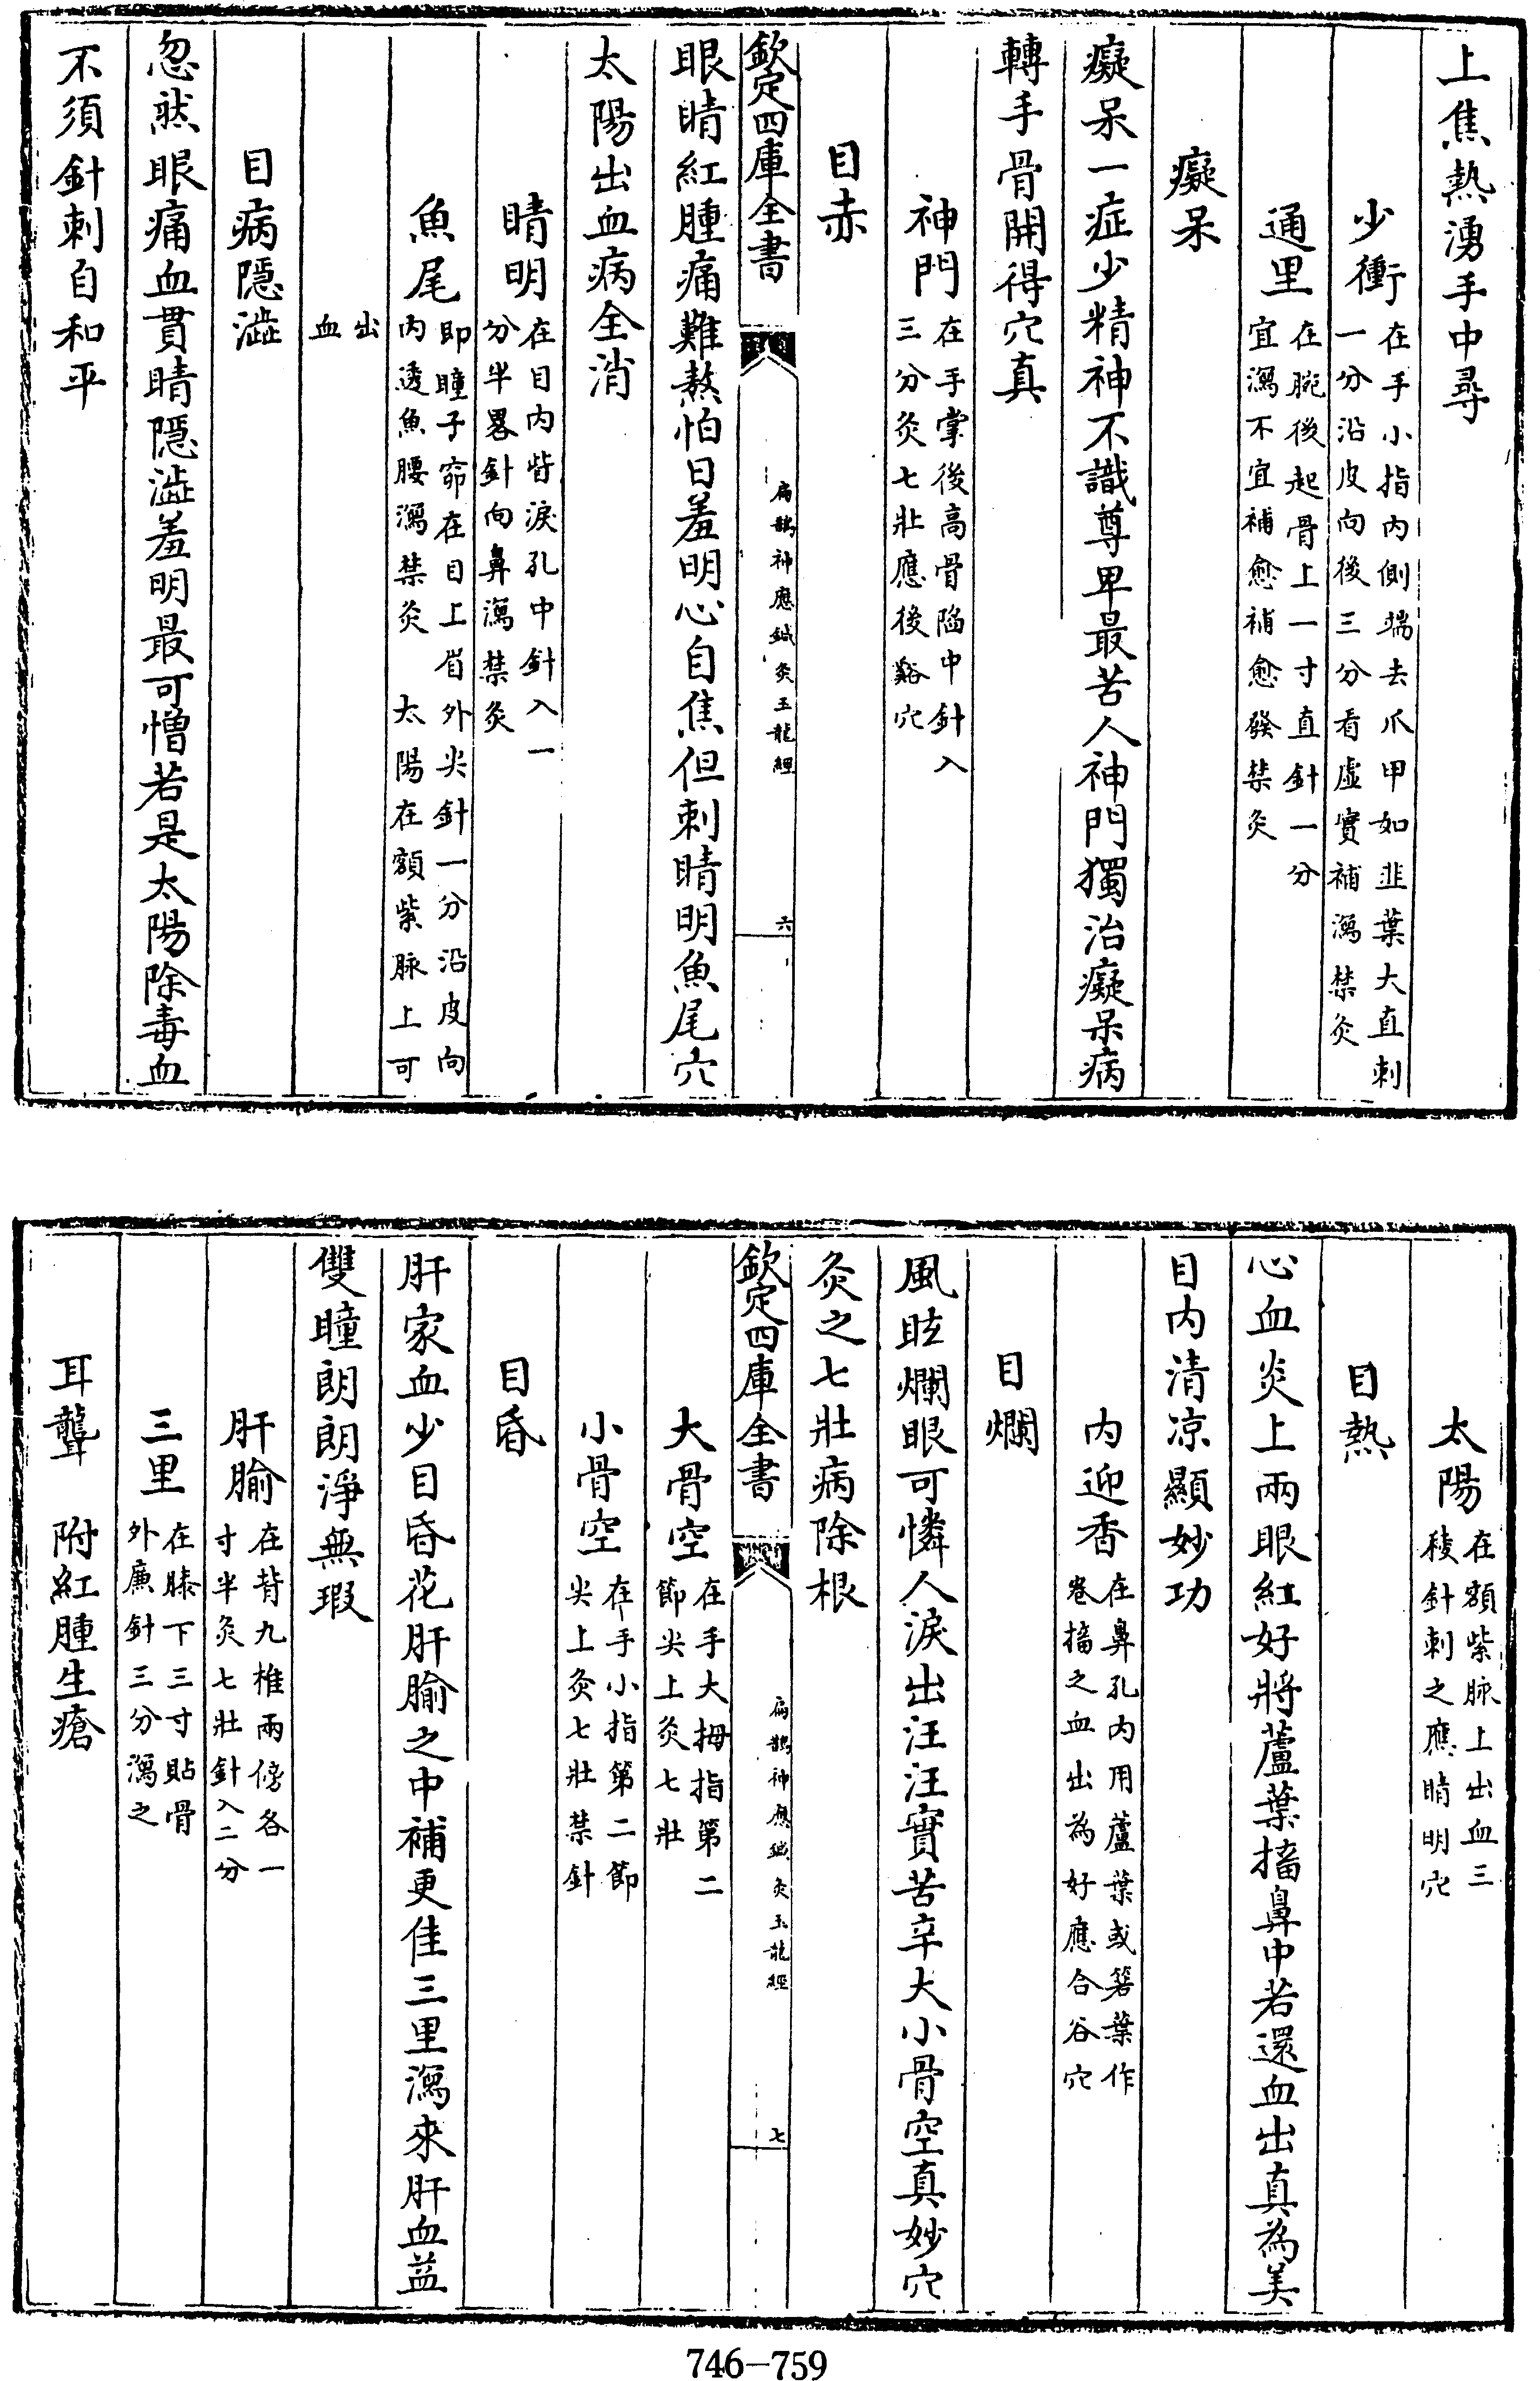 上焦熱湧手中尋
少衝在手小指内側端去爪甲如韭葉大直刺
一分沿皮向後三分看虚實補瀉禁灸
通里在腕後起骨上一寸直針一分
宜瀉不宜補愈補愈發禁灸
癡呆
癡呆一症少精神不識尊卑最苦人神門獨治癡呆病
轉手骨開得穴真
神門在手掌後高骨陷中針入
三分灸七壯應後谿穴
目赤
欽定四庫全書
扁鵲神應鍼灸玉龍經
六
眼睛紅腫痛難熬怕日羞明心自焦但刺睛明魚尾穴
太陽出血病全消
睛明在目内眥淚孔中針入一
分半畧針向鼻瀉禁灸
魚尾即瞳子窌在目上眉外尖針一分沿皮向
内透魚腰瀉禁灸 太陽在額紫脉上可
出
血
目病隱澁
忽然眼痛血貫睛隱澁羞明最可憎若是太陽除毒血
不須針刺自和平
太陽在額紫脉上出血三
稜針刺之應睛明穴
目熱
心血炎上兩眼紅好將蘆葉搐鼻中若還血出真為美
目内清凉顯妙功
内迎香在鼻孔内用蘆葉或箬葉作
卷搐之血出為好應合谷穴
目爛
風眩爛眼可憐人淚出汪汪實苦辛大小骨空真妙穴
灸之七壯病除根
欽定四庫全書
扁鵲神應鍼灸玉龍經
七
大骨空在手大拇指第二
節尖上灸七壯
小骨空在手小指第二節
尖上灸七壯禁針
目昏
肝家血少目昏花肝腧之中補更佳三里瀉來肝血益
雙瞳朗朗淨無瑕
肝腧在背九椎兩傍各一
寸半灸七壯針入二分
三里在膝下三寸貼骨
外廉針三分瀉之
耳聾 附紅腫生瘡
746-759